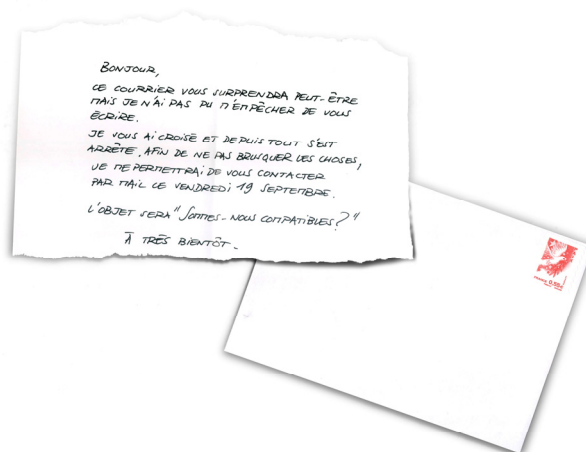 BONJOUR,
CE COURRIER VOUS SURPRENDRA PEUT-ÊTRE
MAIS JE N'AI PAS PU M'EMPÊCHER DE VOUS
ÉCRIRE.
JE VOUS AI CROISÉ ET DEPUIS TOUT S'EST
ARRÊTÉ. AFIN DE NE PAS BRUSQUER LES CHOSES,
JE ME PERMETTRAI DE VOUS CONTACTER
PAR MAIL LE VENDREDI 19 SEPTEMBRE.
L'OBJET SERA "SOMMES-NOUS COMPATIBLES?"
À TRÈS BIENTÔT.
0.55€